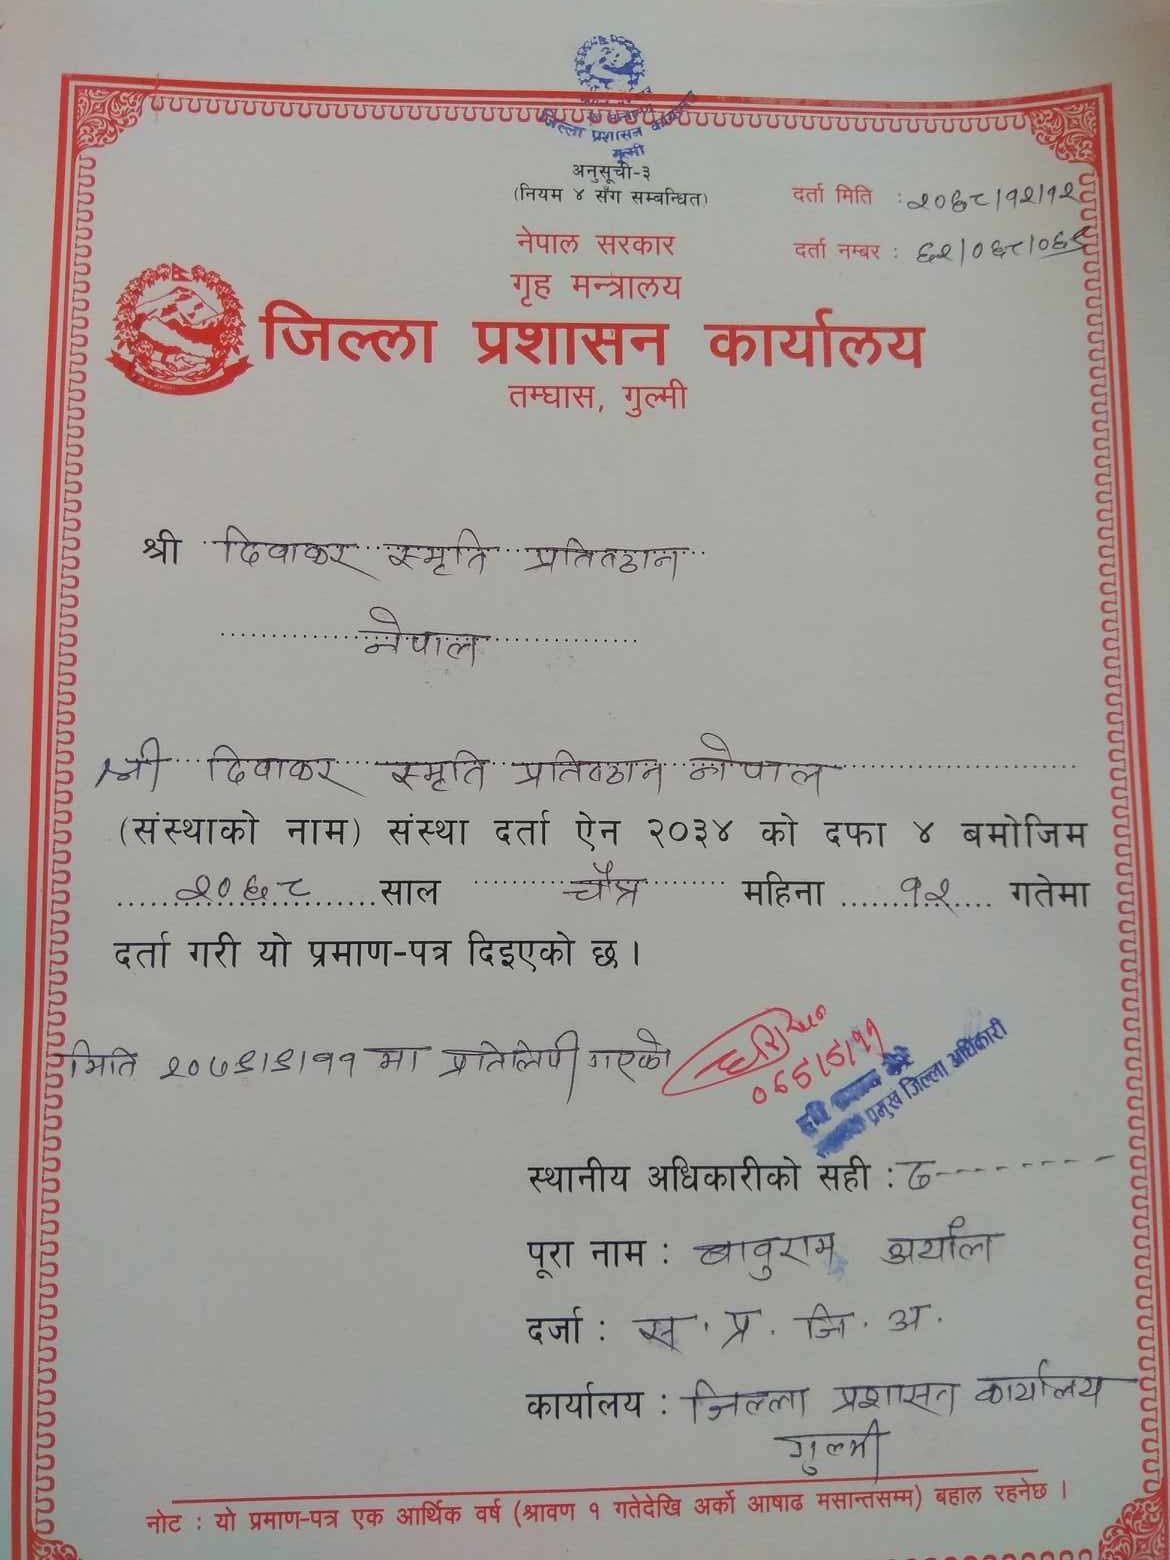 जिल्ला प्रशासन कार्यालय
गुल्मी
अनुसूची-३
(नियम ४ सँग सम्बन्धित)
दर्ता मिति : २०६८/१२/१२
नेपाल सरकार
दर्ता नम्बर : ६२/०६८/०६९
गृह मन्त्रालय
जिल्ला प्रशासन कार्यालय
तम्घास, गुल्मी
श्री दिवाकर स्मृति प्रतिष्ठान
नेपाल
श्री दिवाकर स्मृति प्रतिष्ठान नेपाल
(संस्थाको नाम) संस्था दर्ता ऐन २०३४ को दफा ४ बमोजिम
२०६८ साल चैत्र महिना १२ गतेमा
दर्ता गरी यो प्रमाण-पत्र दिइएको छ ।
मिति २०७९/९/११ मा प्रतिलिपी गएको
प्रमुख जिल्ला अधिकारी
स्थानीय अधिकारीको सही : द--------
पूरा नाम : बाबुराम अर्याल
दर्जा : स. प्र. जि. अ.
कार्यालय : जिल्ला प्रशासन कार्यालय
गुल्मी
नोट : यो प्रमाण-पत्र एक आर्थिक वर्ष (श्रावण १ गतेदेखि अर्को आषाढ मसान्तसम्म) बहाल रहनेछ ।